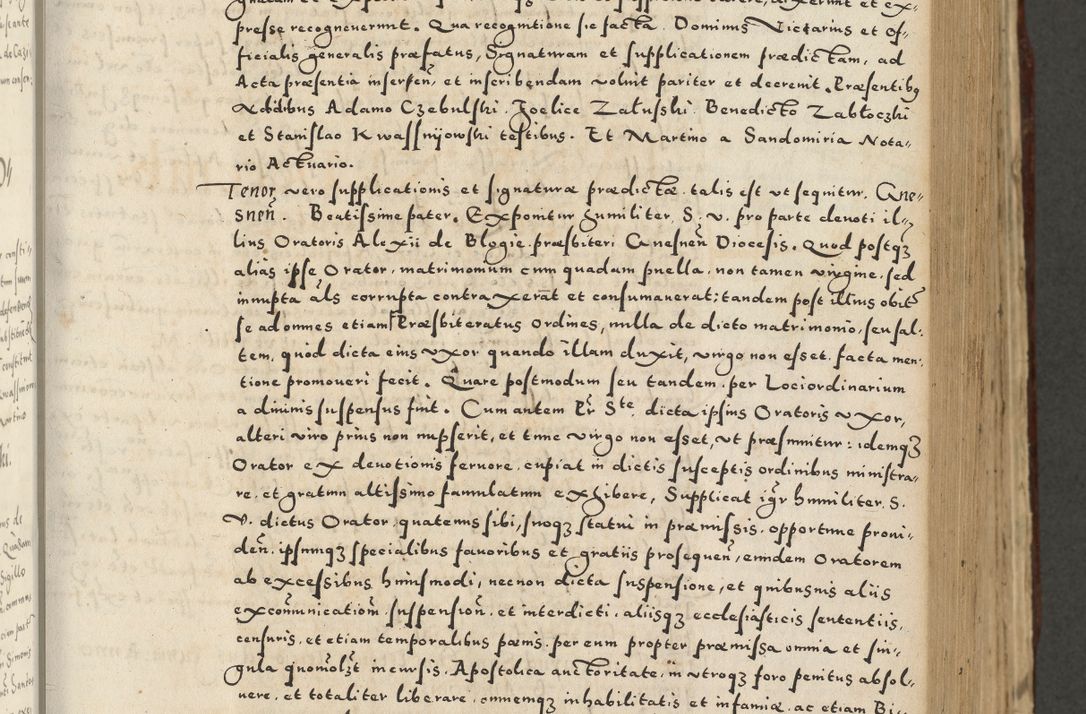 presse recogneuerunt. Qua recognitione sic facta. Dominus Victarius et Of„
ficialis generalis præfatus, Signaturam et supplicationem prædictam, ad
Acta præsentia inserẽn, et inscribendam voluit pariter et decreuit. Præsentibꝫ
ibidibus Adamo Czebulski. Joelice Załusski. Benedicto Zabłoczki
et Stanislao Kwassnijowski testibus. Et Martino a Sandomiria Nota„
rio Actuario.
Tenor vero supplicationis et signaturæ prædictæ talis est vt sequitur. Gne„
snen̄. Beatissime pater. Exponitur humiliter S. v. pro parte deuoti il„
lius Oratoris Alexii de Blogie præsbiteri Gnesnen̄ Diocesis. Quod postqꝫ
alias ipse Orator, matrimonium cum quadam puella, non tamen virgine, sed
innupta al̄s corrupta contraxerat̄ et consumauerat; tandem post illius obit̄
se ad omnes etiam Præsbiteratus ordines, nulla de dicto matrimonio, seu sal:
tem, quod dicta eius vxor quando illam duxit, virgo non esset, facta men:
tione promoueri fecit. Quare postmodum seu tandem per Lociordinarium
a diuinis suspensus fuit. Cum autem Pr̄ Ste, dicta ipsius Oratoris vxor,
alteri viro prius non nupserit, et tunc virgo non esset, vt præsumitur: idemqꝫ
Orator ex deuotionis feruore, cupiat in dictis susceptis ordinibus ministra„
re, et gratum altissimo famulatum exhibere, Supplicat igr̄ humiliter S.
V. dictus Orator, quatenus sibi, suoqꝫ statui in præmissis opportune proui„
den̄. ipsumqꝫ specialibus fauoribus et gratiis prosequen̄, eundem Oratorem
ab excessibus huiusmodi, necnon dicta suspensione, et quibusuis aliis
excom̄unication̄. suspension̄. et interdicti, aliisqꝫ ecclesiasticis sententiis,
censuris, et etiam temporalibus pænis, per eum propter præmissa omnia et sin„
gula quomol꜒t incursis, Apostolica auctoritate, in vtroqꝫ foro penitus absol„
uere, et totaliter liberare, omnemqꝫ inhabilitatis et infamiæ, ac etiam Bi„